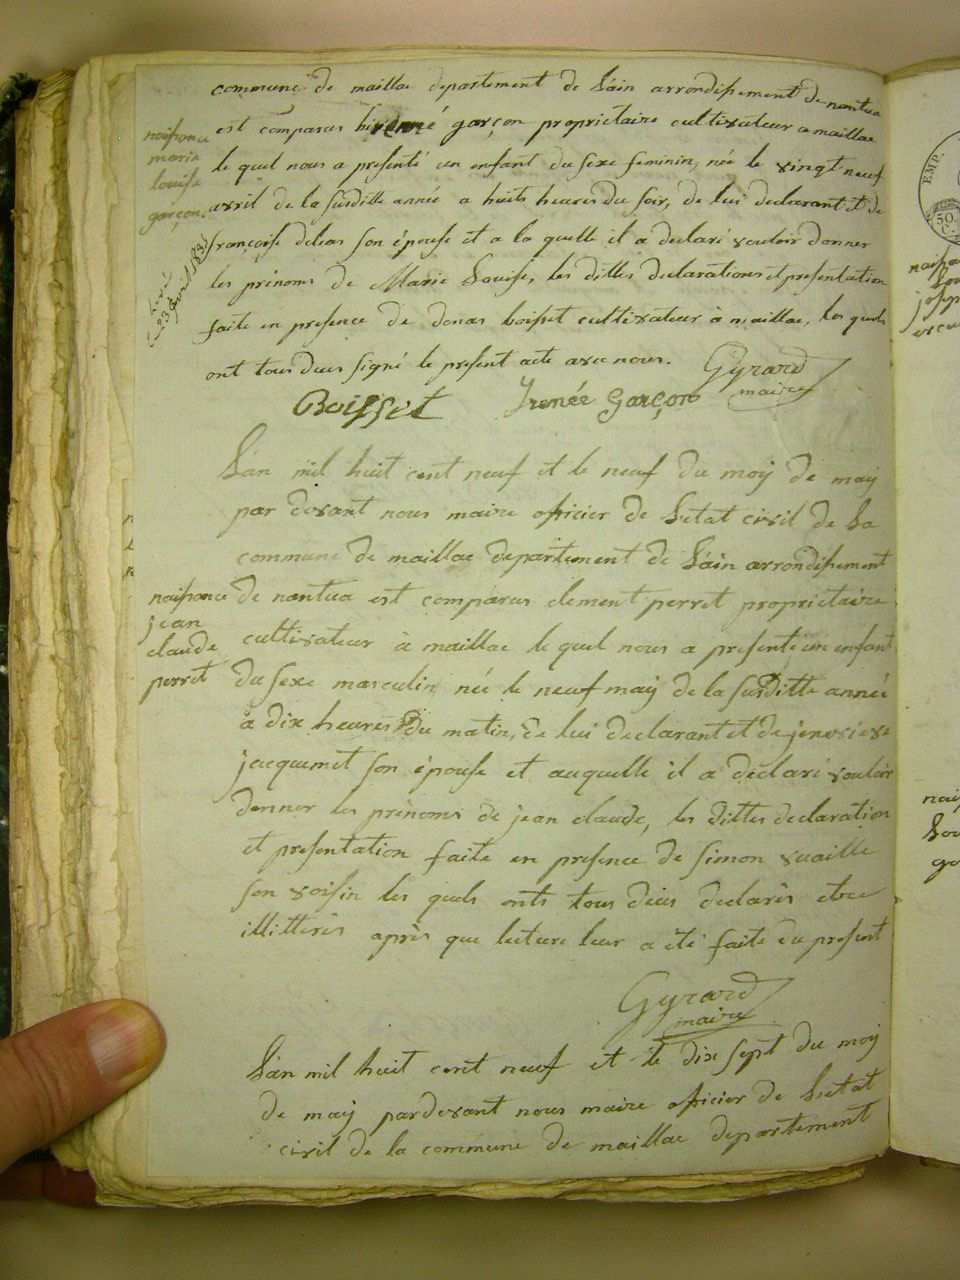 commune de maillac departement de L'ain arrondissement de nantua
est comparus hirenné garçon proprietaire cultivateur a maillac
le quel nous a presenté un enfant du sexe feminin, née le vingt neuf
avril de la susditte année a huits heures du soir, de lui declarant et de
françoise delias son épouse et a la quelle il a declaré vouloir donner
les prénoms de Marie Louise, les dittes declarations et presentation
faite en presence de donas boisset cultivateur à maillac, les quels
ont tous deux signé le present acte avec nous. Gyrard
maire
Boisset Irenée Garçon
naissance
marie
louise
garçon.
Livré
23 avril 1835
L'an mil huit cent neuf et le neuf du moÿ de maÿ
par devant nous maire officier de Létat civil de la
commune de maillac departement de L'ain arrondissement
de nantua est comparus clement perret proprietaire
cultivateur à maillac le quel nous a presenté un enfant
du sexe masculin née le neuf maÿ de la susditte année
a dix heures du matin, de lui declarant et de jenevieve
jacquemet son épouse et auquelle il a déclaré vouloir
donner les prénoms de jean claude, les dittes declaration
et presentation faite en presence de simon vuaille
son voisin les quels onts tous deux declarés etre
illittérés après que lecture leur a été faite du present
naissance
jean
claude
perret
Gyrard
maire
L'an mil huit cent neuf et le dix sept du moÿ
de maÿ pardevant nous maire officier de Létat
civil de la commune de maillac departement
EMP.
50.
C.